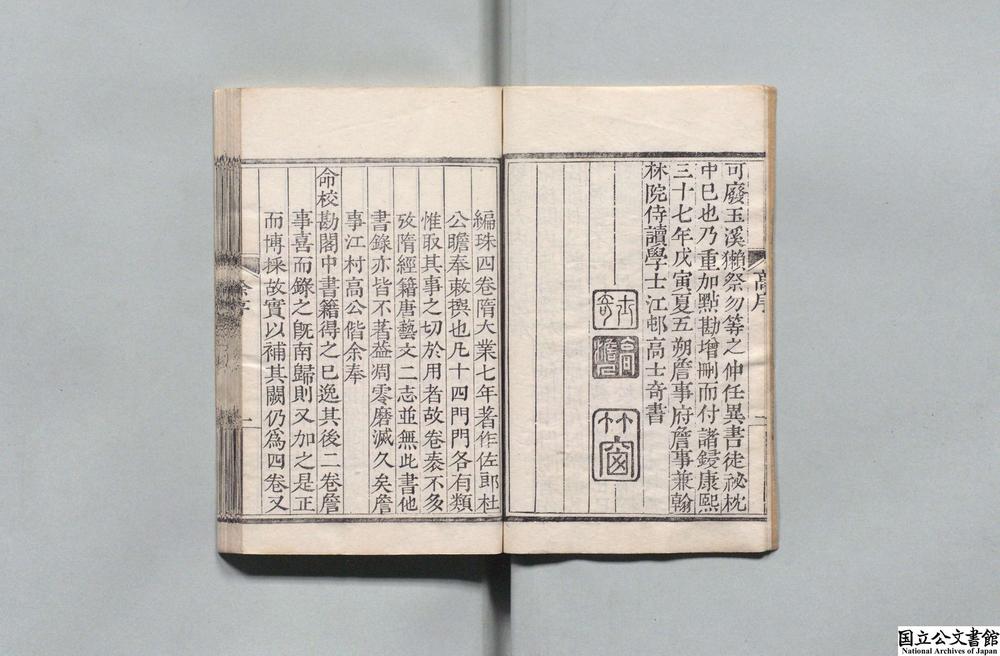 可廢玉溪獺祭勿等之仲任異書徒祕枕
中已也乃重加點勘增刪而付諸鋟康熙
三十七年戊寅夏五朔詹事府詹事兼翰
林院侍讀學士江邨高士奇書
士奇
高澹人
竹窗
高序
一
編珠四卷隋大業七年著作佐郎杜
公瞻奉敕撰也凡十四門門各有類
惟取其事之切於用者故卷袠不多
攷隋經籍唐藝文二志並無此書他
書錄亦皆不著葢凋零磨滅久矣詹
事江村高公偕余奉
命校勘閣中書籍得之已逸其後二卷詹
事喜而錄之旣南歸則又加之是正
而博採故實以補其闕仍為四卷又
徐序
一
国立公文書館
National Archives of Japan